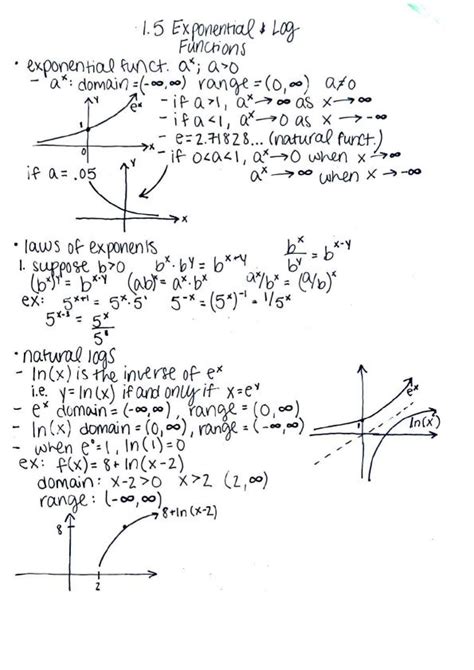 1.5 Exponential & Log
Functions
• exponential funct. aˣ; a>0
- aˣ: domain=(-∞,∞) range=(0,∞) a≠0
- if a>1, aˣ→∞ as x→∞
- if a<1, aˣ→0 as x→-∞
- e=2.71828... (natural funct.)
- if 0<a<1, aˣ→0 when x→∞
aˣ→∞ when x→-∞
y
eˣ
1
0
x
if a=.05
y
x
• laws of exponents
1. suppose b>0 bˣ·bʸ=bˣ⁺ʸ bˣ/bʸ=bˣ⁻ʸ
(bˣ)ʸ=bˣ·ʸ (ab)ˣ=aˣ·bˣ aˣ/bˣ=(a/b)ˣ
ex: 5ˣ⁺¹=5ˣ·5¹ 5⁻ˣ=(5ˣ)⁻¹=1/5ˣ
• natural logs
- ln(x) is the inverse of eˣ
i.e. y=ln(x) if and only if x=eʸ
- eˣ domain=(-∞,∞), range=(0,∞)
- ln(x) domain=(0,∞), range=(-∞,∞)
- when e⁰=1, ln(1)=0
eˣ
1
ln(x)
ex: f(x)=8+ln(x-2)
domain: x-2>0 x>2 (2,∞)
range: (-∞,∞)
8+ln(x-2)
8
2